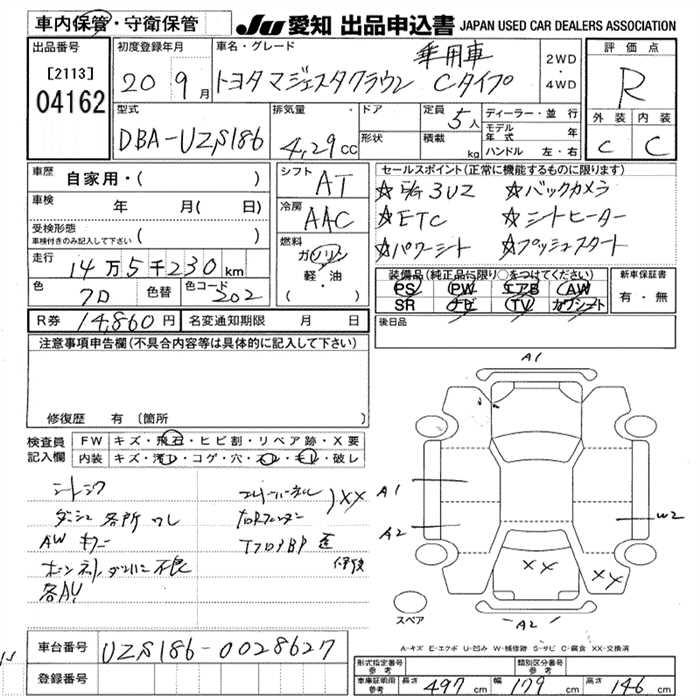 車内保管・守衛保管
JU 愛知 出品申込書 JAPAN USED CAR DEALERS ASSOCIATION
出品番号 [2113] 04162
初度登録年月 20年9月
車名・グレード 乗用車
トヨタ マジェスタクラウン Cタイプ
2WD・4WD
評価点 R
外装 C 内装 C
型式 DBA-UZS186
排気量 4,29cc
ドア 形状
定員 5人
積載 kg
ディーラー・並行
モデル年式 年
ハンドル 左・右
車歴 自家用・( )
車検 年 月( 日)
受検形態
車検付きのみ記入して下さい ( )
走行 14万5千230km
色 クロ 色替 色コード 202
シフト AT
冷房 AAC
燃料 ガソリン
軽・油
( )
セールスポイント(正常に機能するものに限ります)
3UZ ☆バックカメラ
☆ETC ☆シートヒーター
☆パワーシート ☆プッシュスタート
装備品(純正品に限り○をつけてください)
PS PW エアB AW
SR ナビ TV カワシート
新車保証書
有・無
R券 14,860円 名変通知期限 月 日
後日品
注意事項申告欄(不具合内容等は具体的に記入して下さい)
修復歴 有 (箇所 )
検査員記入欄
FW キズ・飛石・ヒビ割・リペア跡・X要
内装 キズ・汚レ・コゲ・穴・スレ・モレ・破レ
ダッシュ 各所 ワレ
AW キズ
不良
XX
A1
A1
A2
W2
XX
XX
A2
スペア
A-キズ E-エクボ U-凹み W-補修跡 S-サビ C-腐食 XX-交換済
車台番号 UZS186-0028627
登録番号
形式指定番号 参考
類別区分番号 参考
車庫証明用 参考 長さ 497cm 幅 179cm 高さ 146cm